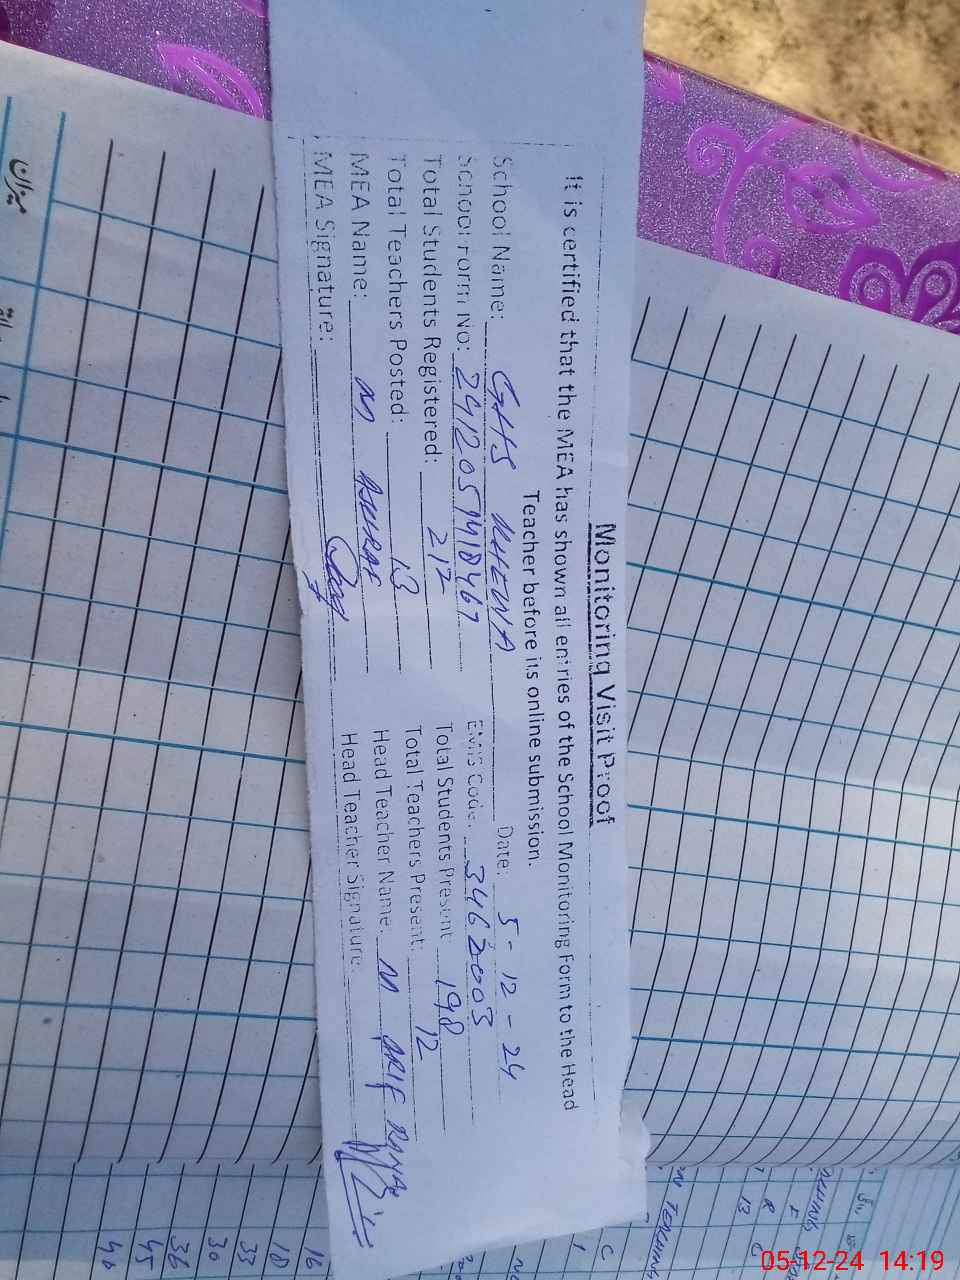 Monitoring Visit Proof
It is certified that the MEA has shown all entries of the School Monitoring Form to the Head
Teacher before its online submission.
School Name: GHS KHEWA Date: 5-12-24
School Form No: 241205 EMIS Code: 3462003
Total Students Registered: 212 Total Students Present 198
Total Teachers Posted: 13 Total Teachers Present: 12
MEA Name: M ASHRAF Head Teacher Name M ARIF RANA
MEA Signature: Head Teacher Signature
میزان
TEACHING
13
16
18
33
30
36
45
46
05-12-24 14:19